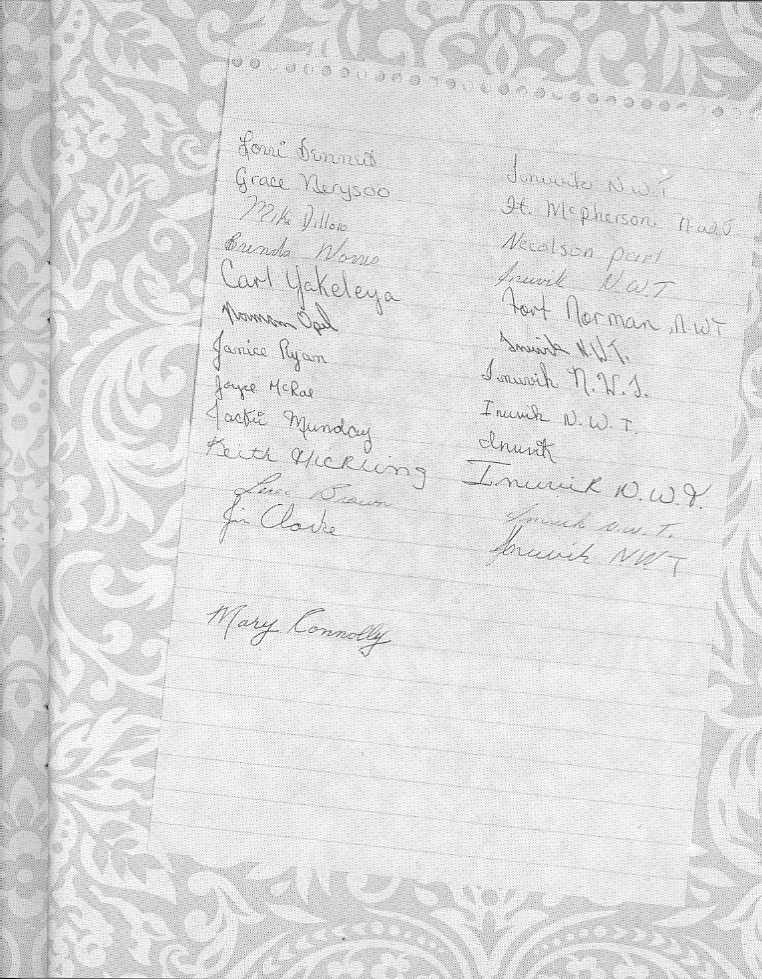 Lorri Bennett Inuvik N.W.T
Grace Nerysoo Ft. Mcpherson. N.W.T
Mike Dillon Necolson part
Brenda Norris Inuvik N.W.T
Carl Yakeleya Fort Norman, N.W.T
Norman Inuvik N.W.T.
Janice Ryan Inuvik N.W.T.
Joyce McRae Inuvik N.W.T.
Jackie Munday Inuvik
Keith Hickling Inuvik N.W.T.
Brown Inuvik N.W.T.
Jim Clarke Inuvik NWT
Mary Connolly